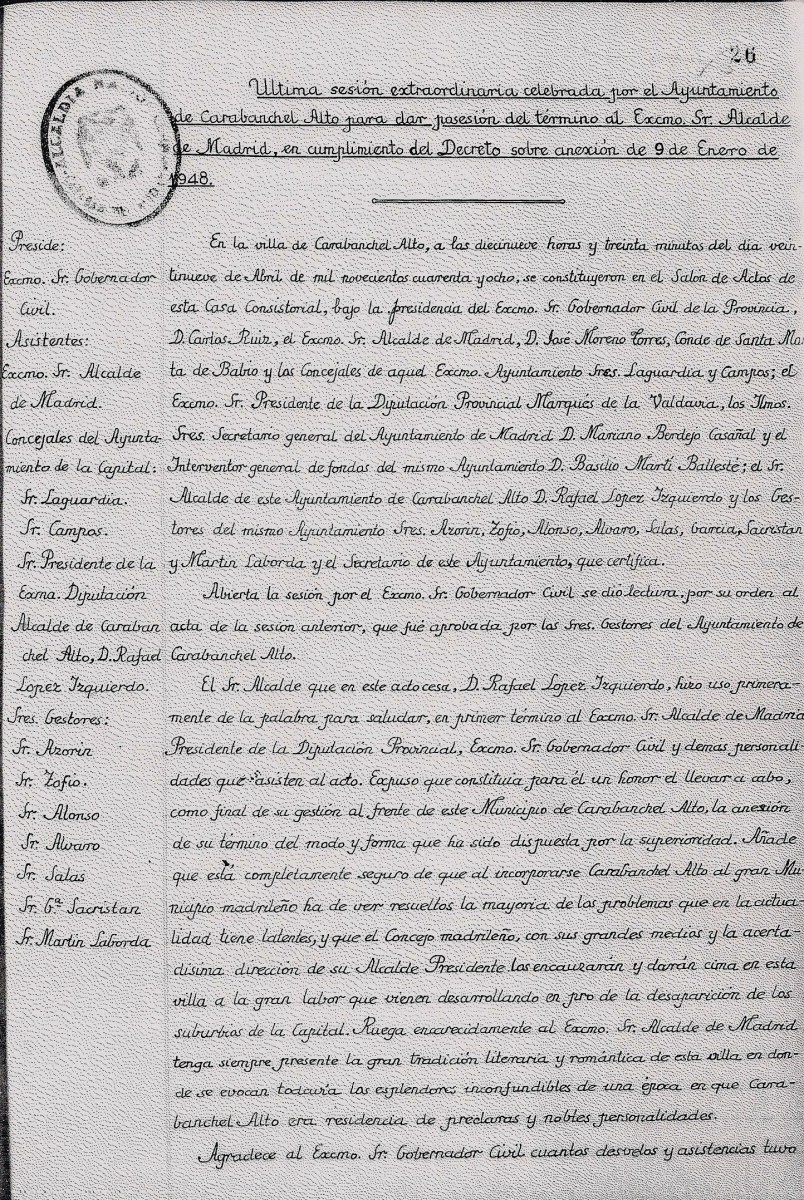 26
Ultima sesión extraordinaria celebrada por el Ayuntamiento
de Carabanchel Alto para dar posesión del término al Excmo. Sr. Alcalde
de Madrid, en cumplimiento del Decreto sobre anexión de 9 de Enero de
1948.
ALCALDIA
Preside:
Excmo. Sr. Gobernador
Civil.
Asistentes:
Excmo. Sr. Alcalde
de Madrid.
Concejales del Ayunta-
miento de la Capital:
Sr. Laguardia.
Sr. Campos.
Sr. Presidente de la
Exma. Diputación
Alcalde de Caraban
chel Alto, D. Rafael
Lopez Izquierdo.
Sres. Gestores:
Sr. Azorin
Sr. Zofio.
Sr. Alonso
Sr. Alvaro
Sr. Salas
Sr. Gª Sacristan
Sr. Martin Laborda
En la villa de Carabanchel Alto, a las diecinueve horas y treinta minutos del dia vein-
tinueve de Abril de mil novecientos cuarenta y ocho, se constituyeron en el Salon de Actos de
esta Casa Consistorial, bajo la presidencia del Excmo. Sr. Gobernador Civil de la Provincia,
D. Carlos Ruiz, el Excmo. Sr. Alcalde de Madrid, D. José Moreno Torres, Conde de Santa Mar
ta de Babio y los Concejales de aquel Excmo. Ayuntamiento Sres. Laguardia y Campos; el
Excmo. Sr. Presidente de la Diputación Provincial Marqués de la Valdavia, los Ilmos.
Sres. Secretario general del Ayuntamiento de Madrid D. Mariano Berdejo Casañal y el
Interventor general de fondos del mismo Ayuntamiento D. Basilio Martí Ballesté; el Sr.
Alcalde de este Ayuntamiento de Carabanchel Alto D. Rafael Lopez Izquierdo y los Ges-
tores del mismo Ayuntamiento Sres. Azorin, Zofio, Alonso, Alvaro, Salas, Garcia, Sacristan
y Martin Laborda y el Secretario de este Ayuntamiento, que certifica.
Abierta la sesión por el Excmo. Sr. Gobernador Civil se dio lectura, por su orden al
acta de la sesión anterior, que fué aprobada por los Sres. Gestores del Ayuntamiento de
Carabanchel Alto.
El Sr. Alcalde que en este acto cesa, D. Rafael Lopez Izquierdo, hizo uso primera-
mente de la palabra para saludar, en primer término al Excmo. Sr. Alcalde de Madrid
Presidente de la Diputación Provincial, Excmo. Sr. Gobernador Civil y demás personali-
dades que asisten al acto. Expuso que constituia para él un honor el llevar a cabo,
como final de su gestión al frente de este Municipio de Carabanchel Alto, la anexión
de su término del modo y forma que ha sido dispuesta por la superioridad. Añade
que está completamente seguro de que al incorporarse Carabanchel Alto al gran Mu-
nicipio madrileño ha de ver resueltos la mayoria de los problemas que en la actua-
lidad tiene latentes, y que el Concejo madrileño, con sus grandes medios y la acerta-
disima dirección de su Alcalde Presidente los encauzarán y darán cima en esta
villa a la gran labor que vienen desarrollando en pro de la desaparición de los
suburbios de la Capital. Ruega encarecidamente al Excmo. Sr. Alcalde de Madrid
tenga siempre presente la gran tradición literaria y romántica de esta villa en don-
de se evocan todavía los esplendores inconfundibles de una época en que Cara-
banchel Alto era residencia de preclaras y nobles personalidades.
Agradece al Excmo. Sr. Gobernador Civil cuantos desvelos y asistencias tuvo